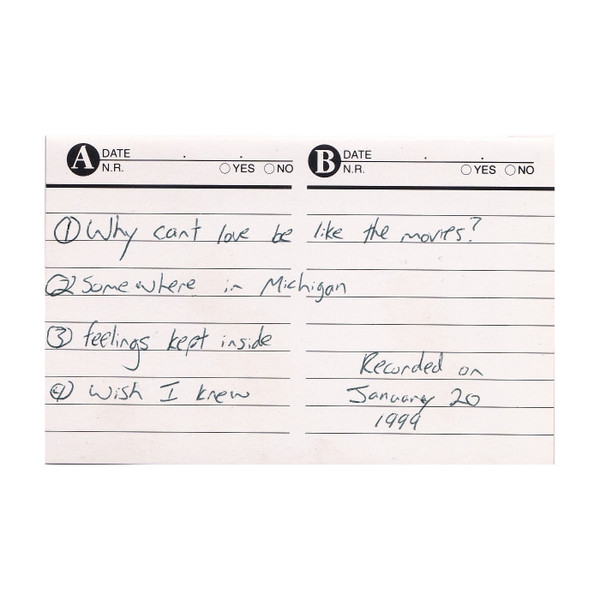 A DATE . . B DATE . .
N.R. YES NO N.R. YES NO
1 Why cant love be like the movies?
2 Somewhere in Michigan
3 feelings kept inside
4 Wish I knew
Recorded on
January 20
1999